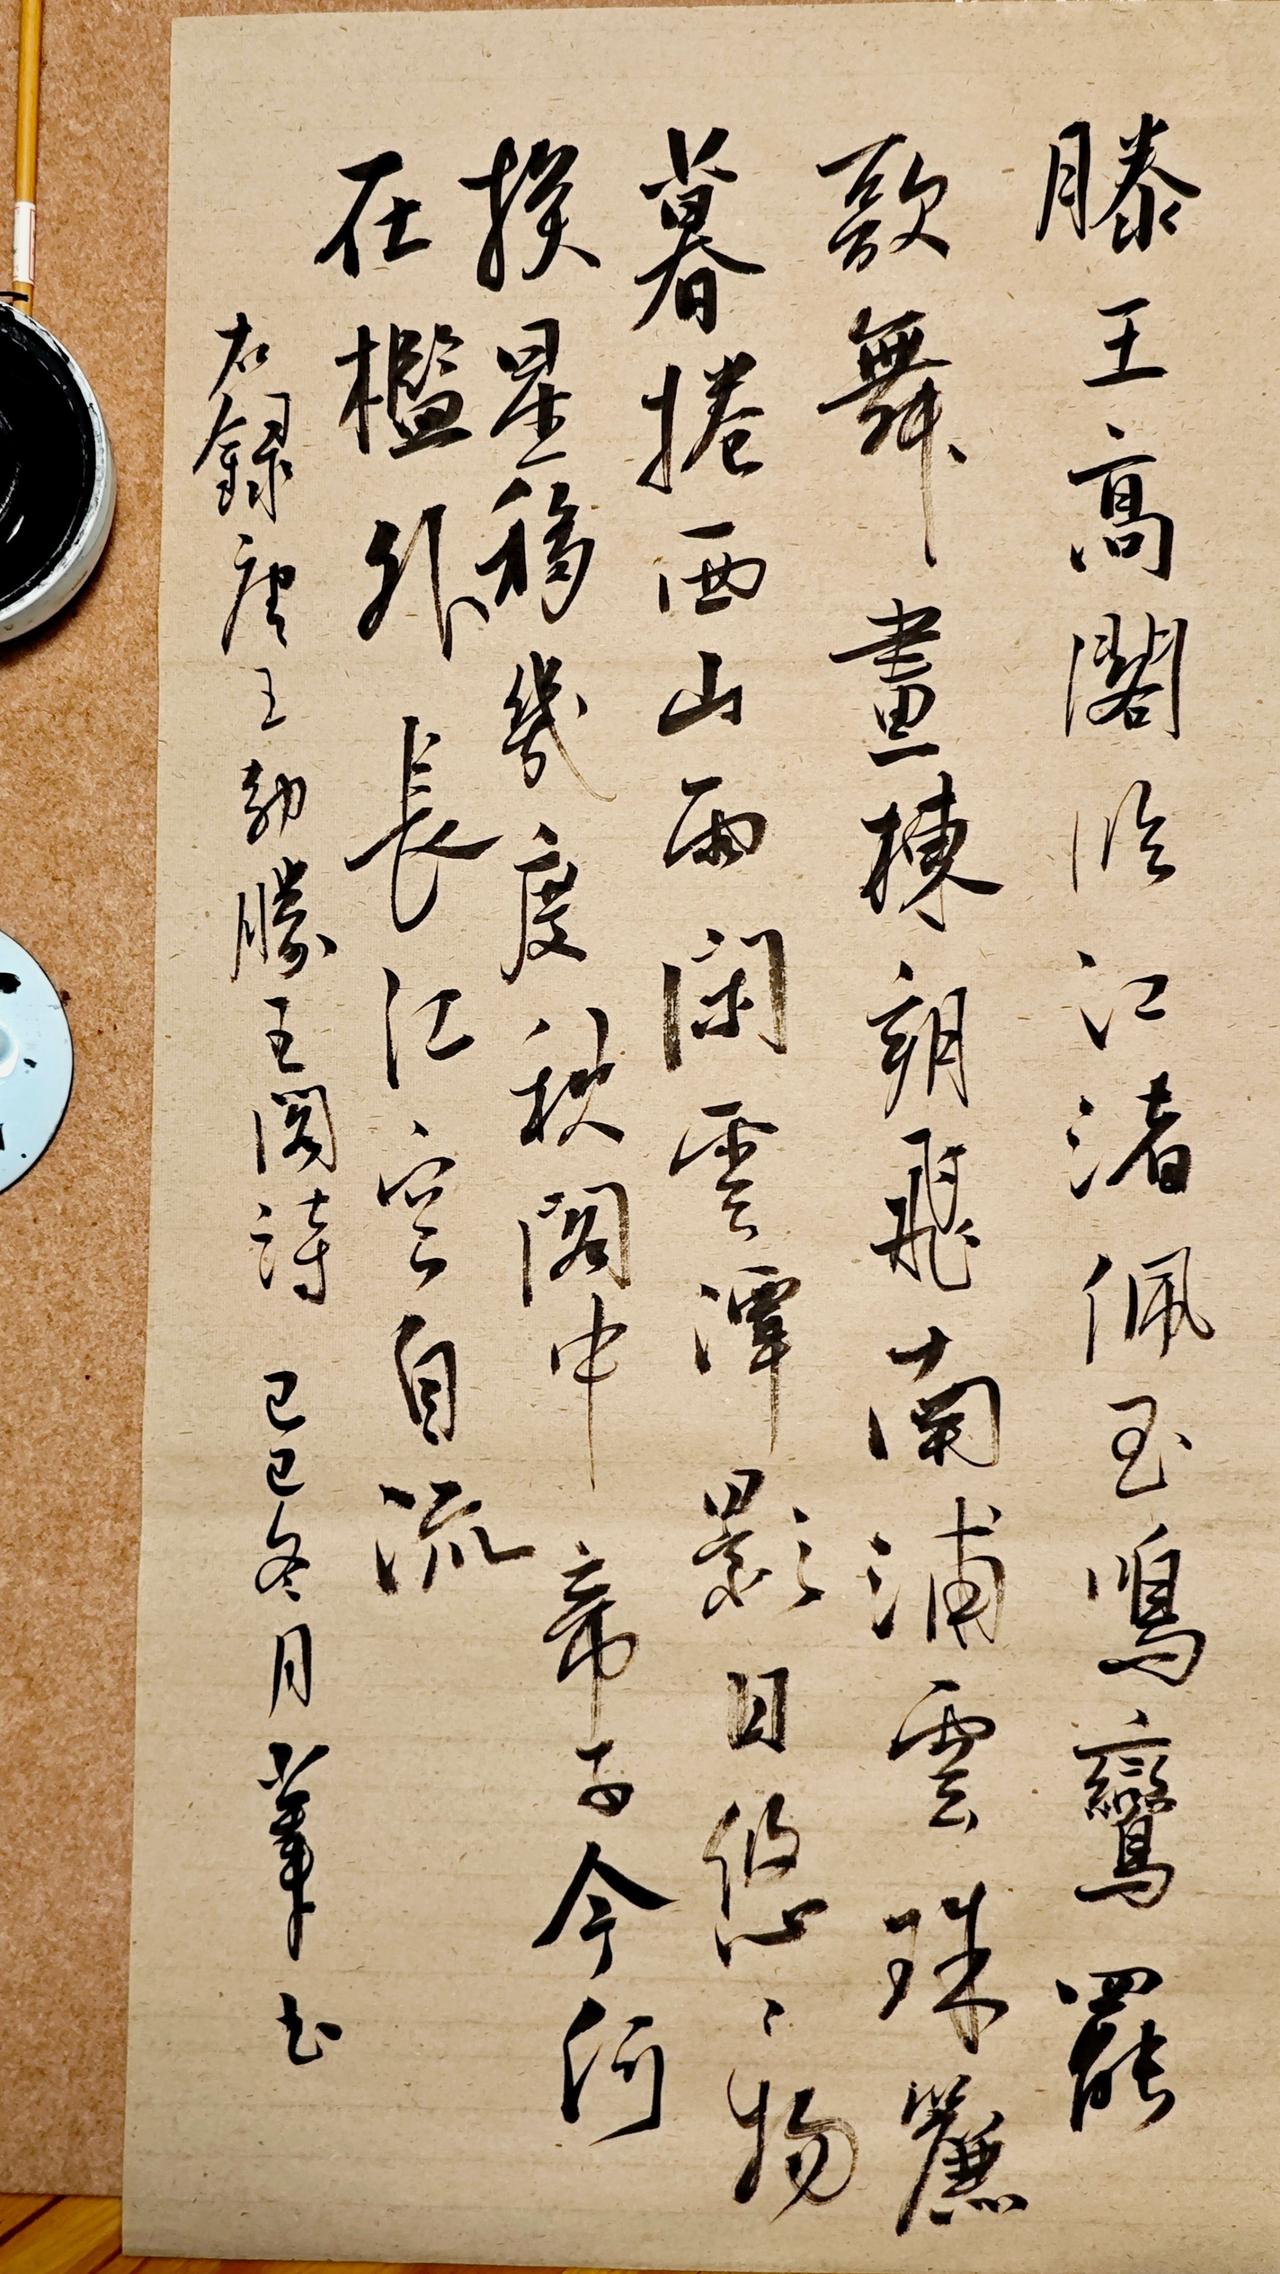 滕王高閣临江渚佩玉鳴鸞罷
歌舞畫棟朝飛南浦雲珠簾
暮捲西山雨閑雲潭影日悠〻物
换星移幾度秋閣中帝子今何
在檻外長江空自流
右錄唐王勃滕王阁詩 己巳冬月 书